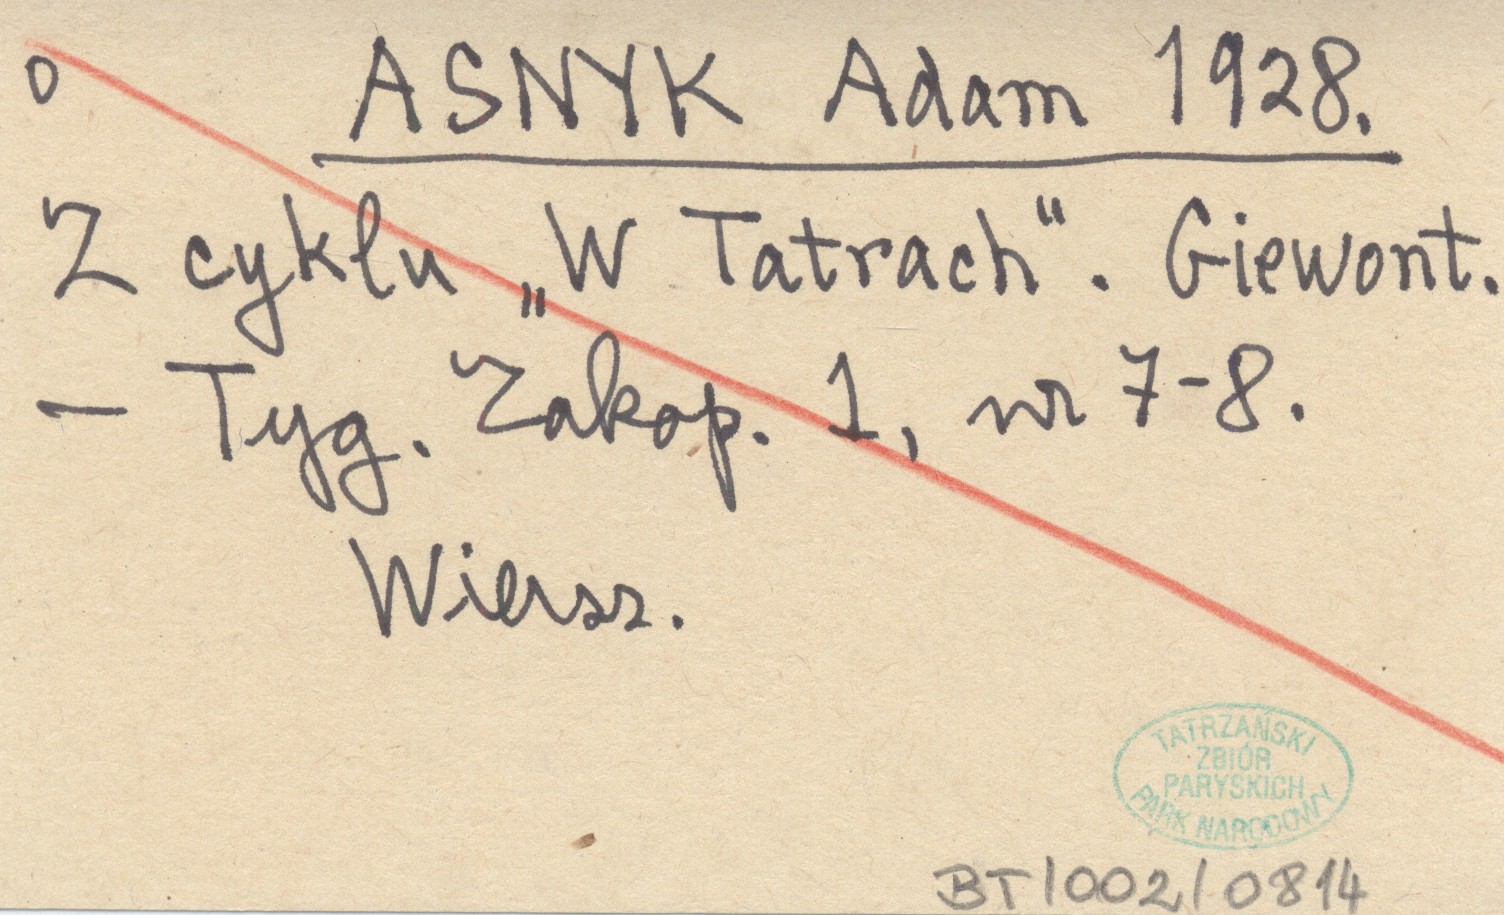 o
ASNYK Adam 1928.
Z cyklu „W Tatrach“. Giewont.
– Tyg. Zakop. 1, nr 7-8.
Wiersz.
TATRZAŃSKI
ZBIÓR
PARYSKICH
PARK NARODOWY
BT/002/0814